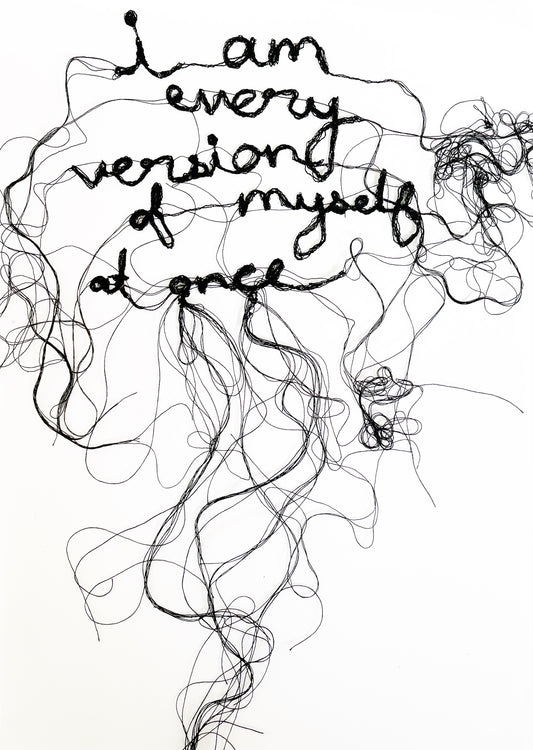 i am
every
version
of myself
at once